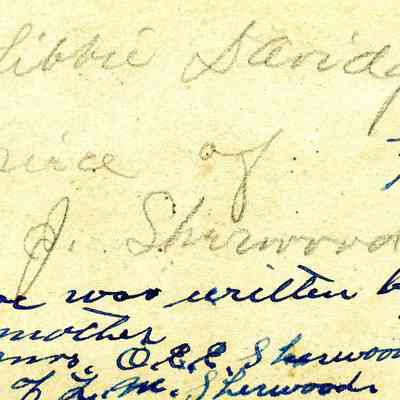 Libbie Davidg
niece of
J. Sherwood
was written b
mother
mrs. O.E.E. Sherwood
of L. M. Sherwood.